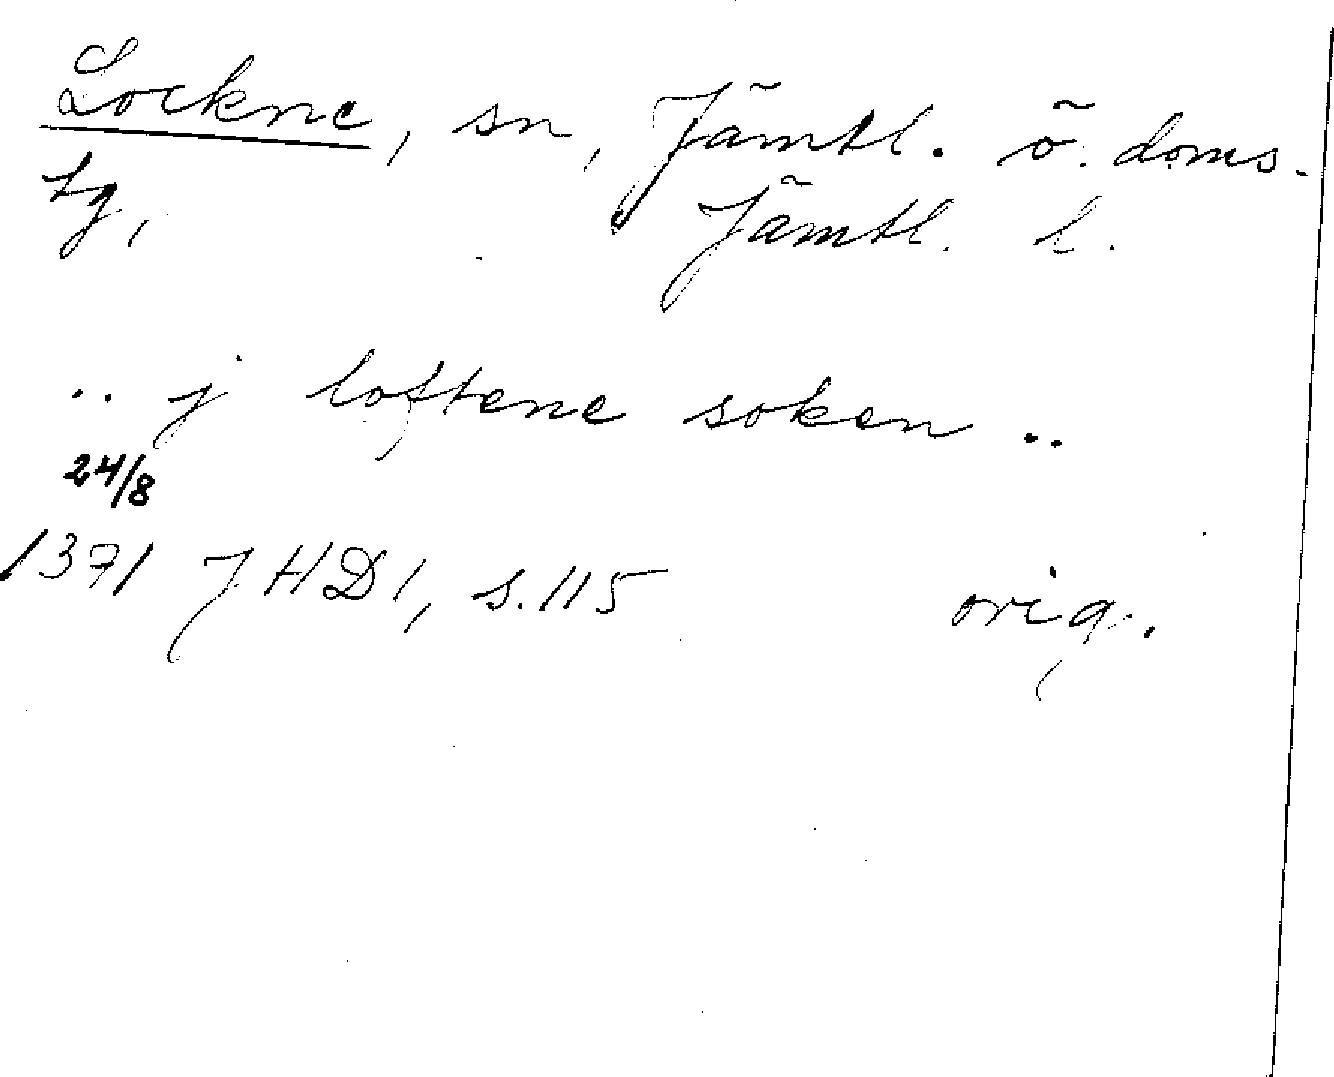 Lockne, sn, Jämtl. ö. doms.
tg, Jämtl. l.
.. j loftene soken ..
24/8
1371 JHD1, s. 115 orig.